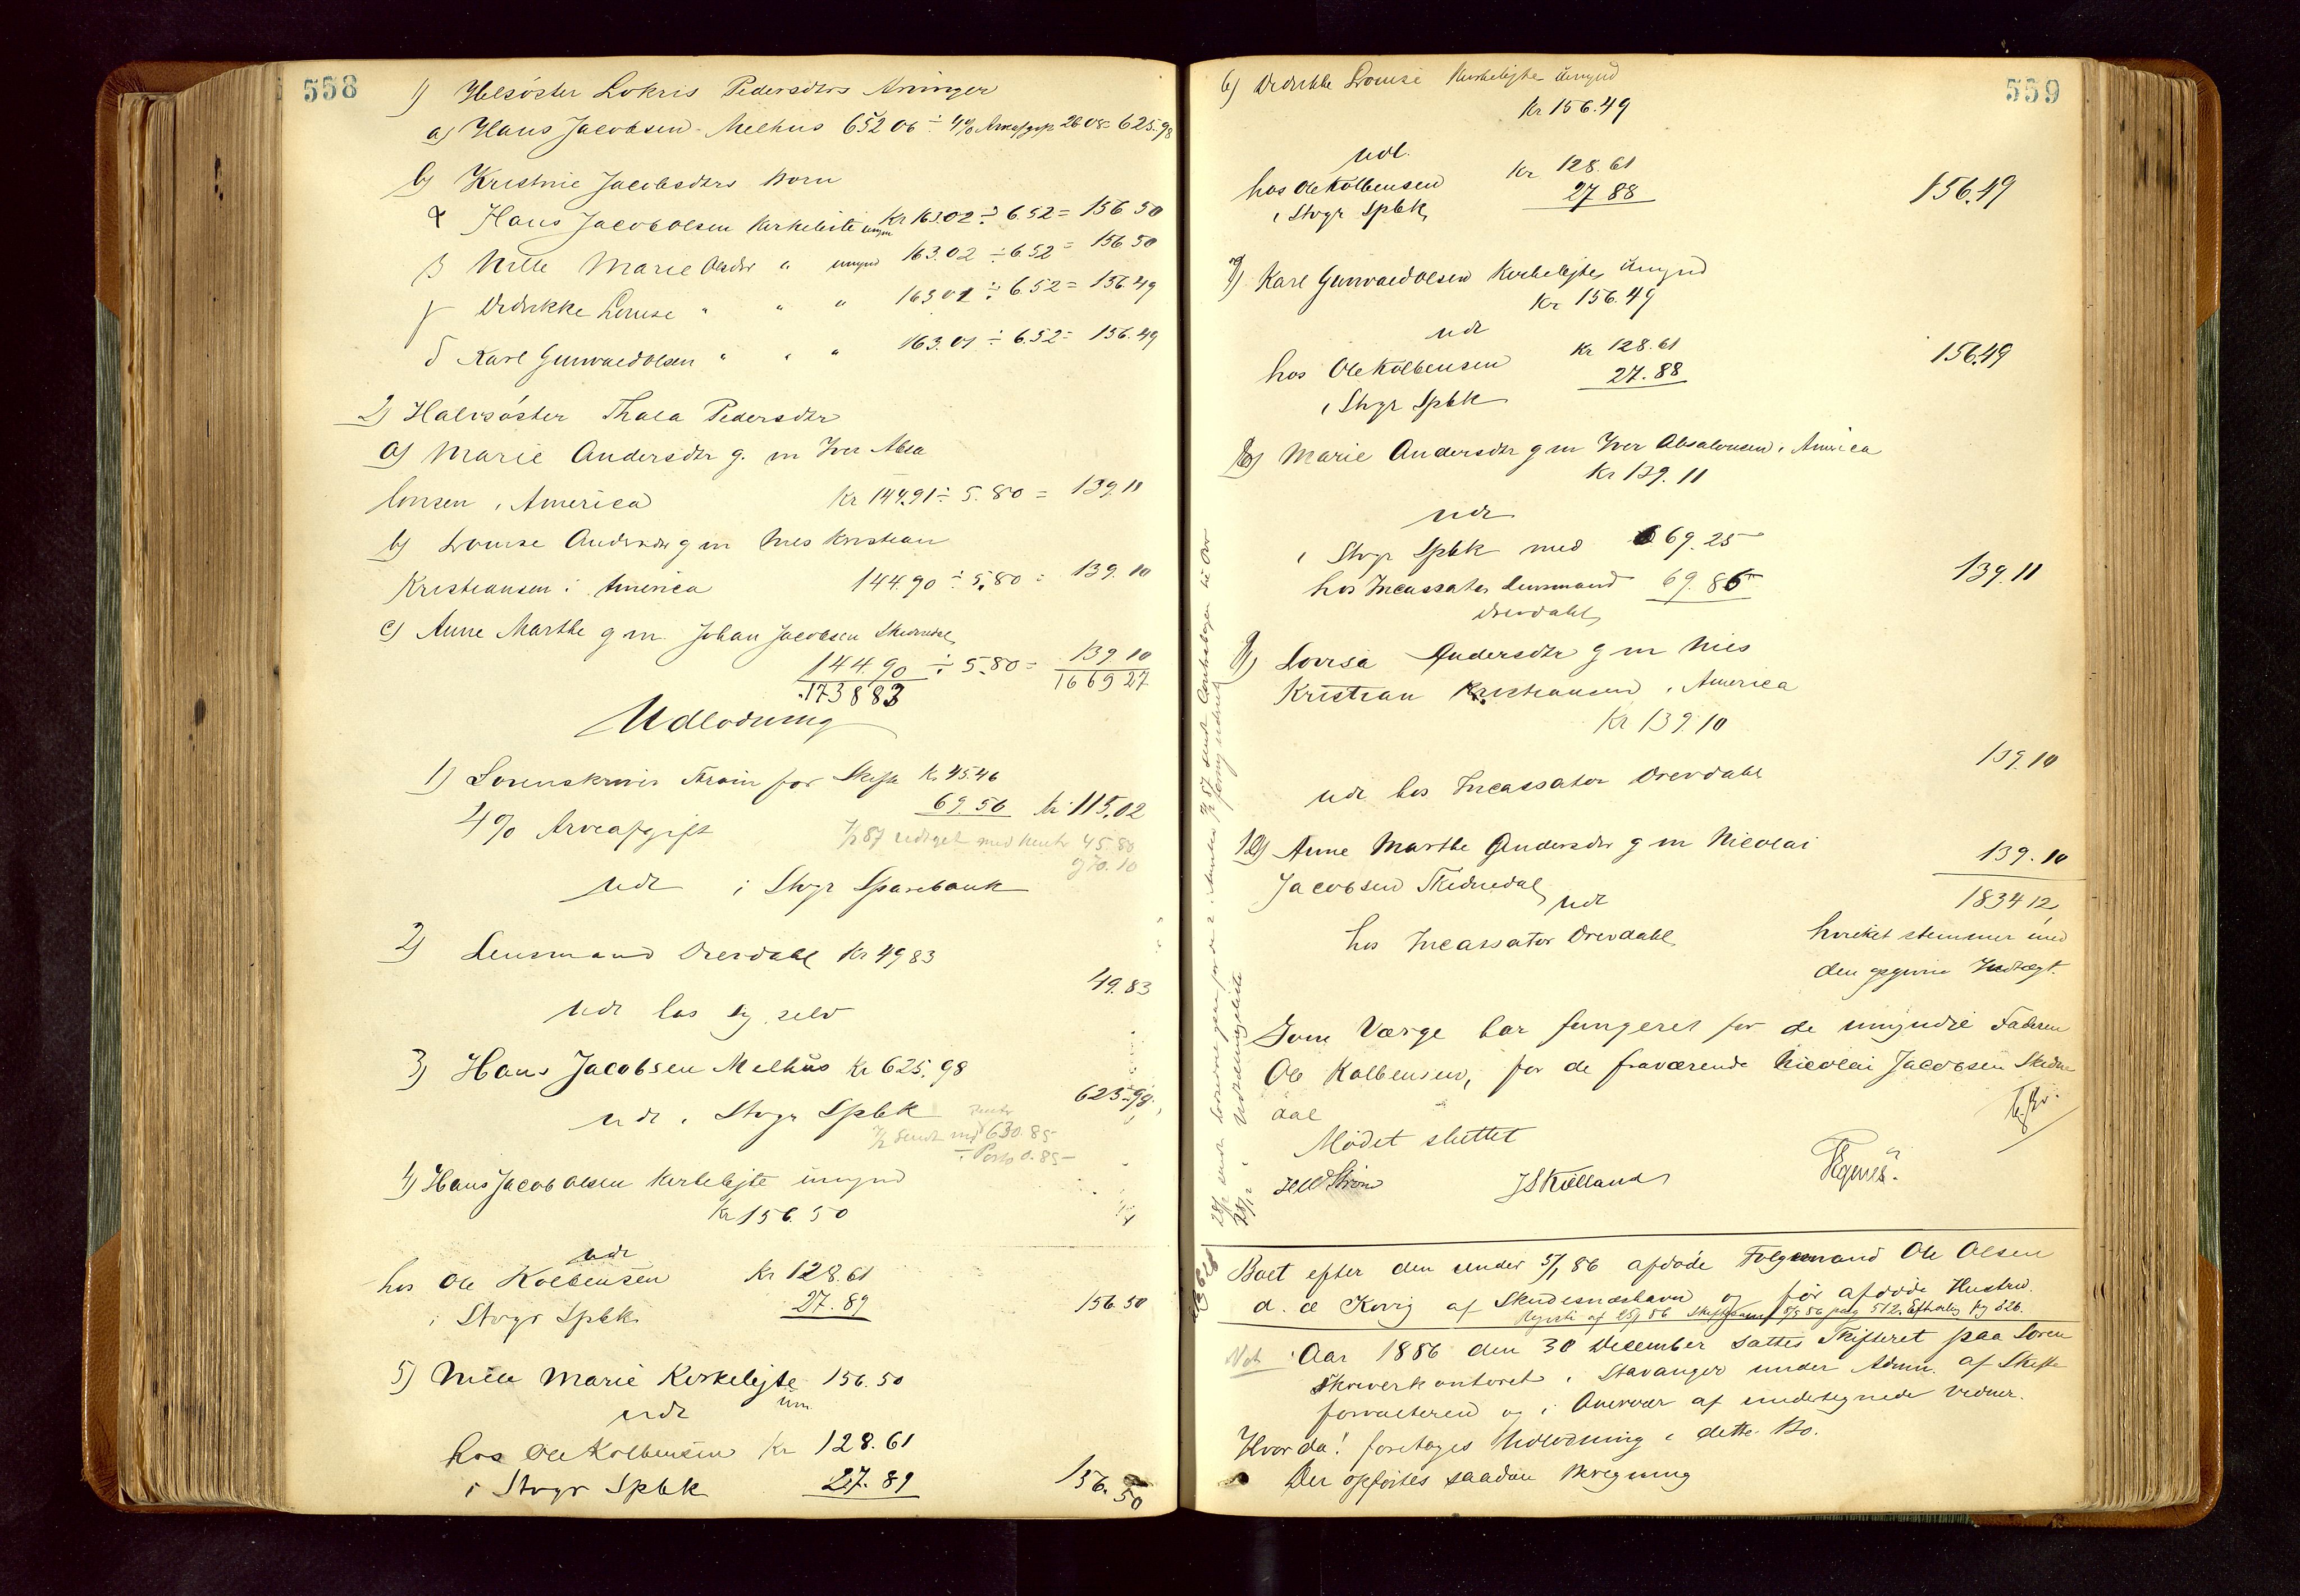 558
1) Helsøster Lokris Pedersdtrs Arvinger
a) Hans Jacobsen Melhus 652 06 ÷ 4% Arveafgift 26 08 = 625.98
b) Kristine Jacobsdtrs Børn
α Hans Jacob Olsen Kirkeleite umyn Kr 163.02 ÷ 6.52 = 156 50
β Nille Marie Olsdtr " umynd 163.02 ÷ 6.52 = 156 50
γ Didrikke Louise " " " 163 01 ÷ 6.52 = 156.49
δ Karl Gunvald Olsen " " " 163.01 ÷ 6.52 = 156.49
2) Halvsøster Thala Pedersdtr
a) Marie Andersdtr g. m Iver Absa
lonsen i America Kr 144.91 ÷ 5.80 = 139 11
b) Lovise Andersdtr g m Nies Kristian
Kristiansen i America 144.90 ÷ 5.80 = 139.10
c) Anne Marthe g m. Johan Jacobsen Skednedal
144.90 ÷ 5.80 = 139.10
1738 83 1669 27
Udlodning
1) Sorenskrivr Strøm for Skifte Kr 45.46
4% Arveafgift 69.56 Kr 115.02
udtaget med Rente 45.80
og 70.10
udl i Stvgr Sparebank
2) Lensmand Drevdahl Kr 49 83
49.83
udl hos sig selv
3) Hans Jacobsen Melhus Kr 625.98
625.98
udl i Stvgr Spbk
Rente
sendt med 630.85
÷ Porto 0.85
4) Hans Jacob Olsen Kirkelejte umynd
Kr 156.50
udl
hos Ole Kolbensen Kr 128.61
i Stvgr Spbk 27.89 156.50
5) Nille Marie Kirkelejte 156.50
um.
udl
hos Ole Kolbensen Kr 128.61
i Stvgr Spbk 27.89 156.50
559
6) Didrikke Lovise Kirkelejte umynd
Kr 156.49
udl.
hos Ole Kolbensen Kr 128.61
i Stvgr Spbk 27.88 156.49
7) Karl Gunvald Olsen Kirkelejte umynd
Kr 156.49
udl
hos Ole Kolbensen Kr 128.61
27.88 156.49
i Stvgr Spbk
8) Marie Andersdtr g m Iver Absalonsen i America
Kr 139.11
udl
i Stvgr Spbk med 69.25
hos Incassator Lensmand 69.86 139.11
Drevdahl
9) Lovisa Andersdtr g m Nies
Kristian Kristiansen i America
Kr 139.10
139.10
udl hos Incassator Drevdahl
10) Anne Marthe Andersdtr g m Nicolai
139.10
Jacobsen Skednedal
1834 12
udl
hos Incassator Drevdahl hvilket stemmer med
den opgivne Indtægt.
Som Værge har fungeret for de umyndie Faderen
Ole Kolbensen, for de fraværende Nicolai Jacobsen Skedne
dal
Mødet sluttet
HW Strøm JS Kielland
Boet efter den under 5/1 86 afdøde Følgemand Ole Olsen
d. æ Kovig af Skudesneshavn og før afdøde Hustru.
Registr af 25/1 86 5/3 86 pag 512. Pg 326.
Aar 1886 den 30 December sattes Skifteret paa Soren
skriverkontoret i Stavanger under Admn. af Skifte
forvalteren og i Overvær af undertegnede Vidner.
Hvor da! foretoges Udlodning i dette Bo.
Der opførtes saadan Beregning